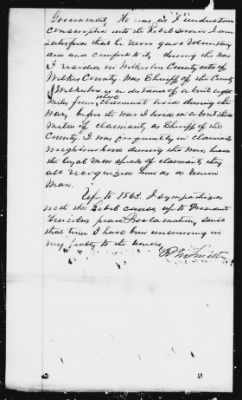 Government, He was as I understand
conscripted into the Rebel service I am
satisfied that he never gave Voluntary
aid and comfort to it, during the War
I resided in Wilkerson County
Wilkes County was Sheriff of the County
Wilkerson is a distance of about eight
miles from where claimant lived during the
War, before the War I lived in about three
miles of claimant, as Sheriff of the
County. I was frequently in claimants
neighborhood during the War, heard
the loyal men speak of claimant, they
all recognized him as a Union
Man.
Up to 1863. I sympathised
with the Rebel cause, up to President
Lincolns peace Proclamation, since
that time I have been unswerving in
my fealty to the Union
Smith